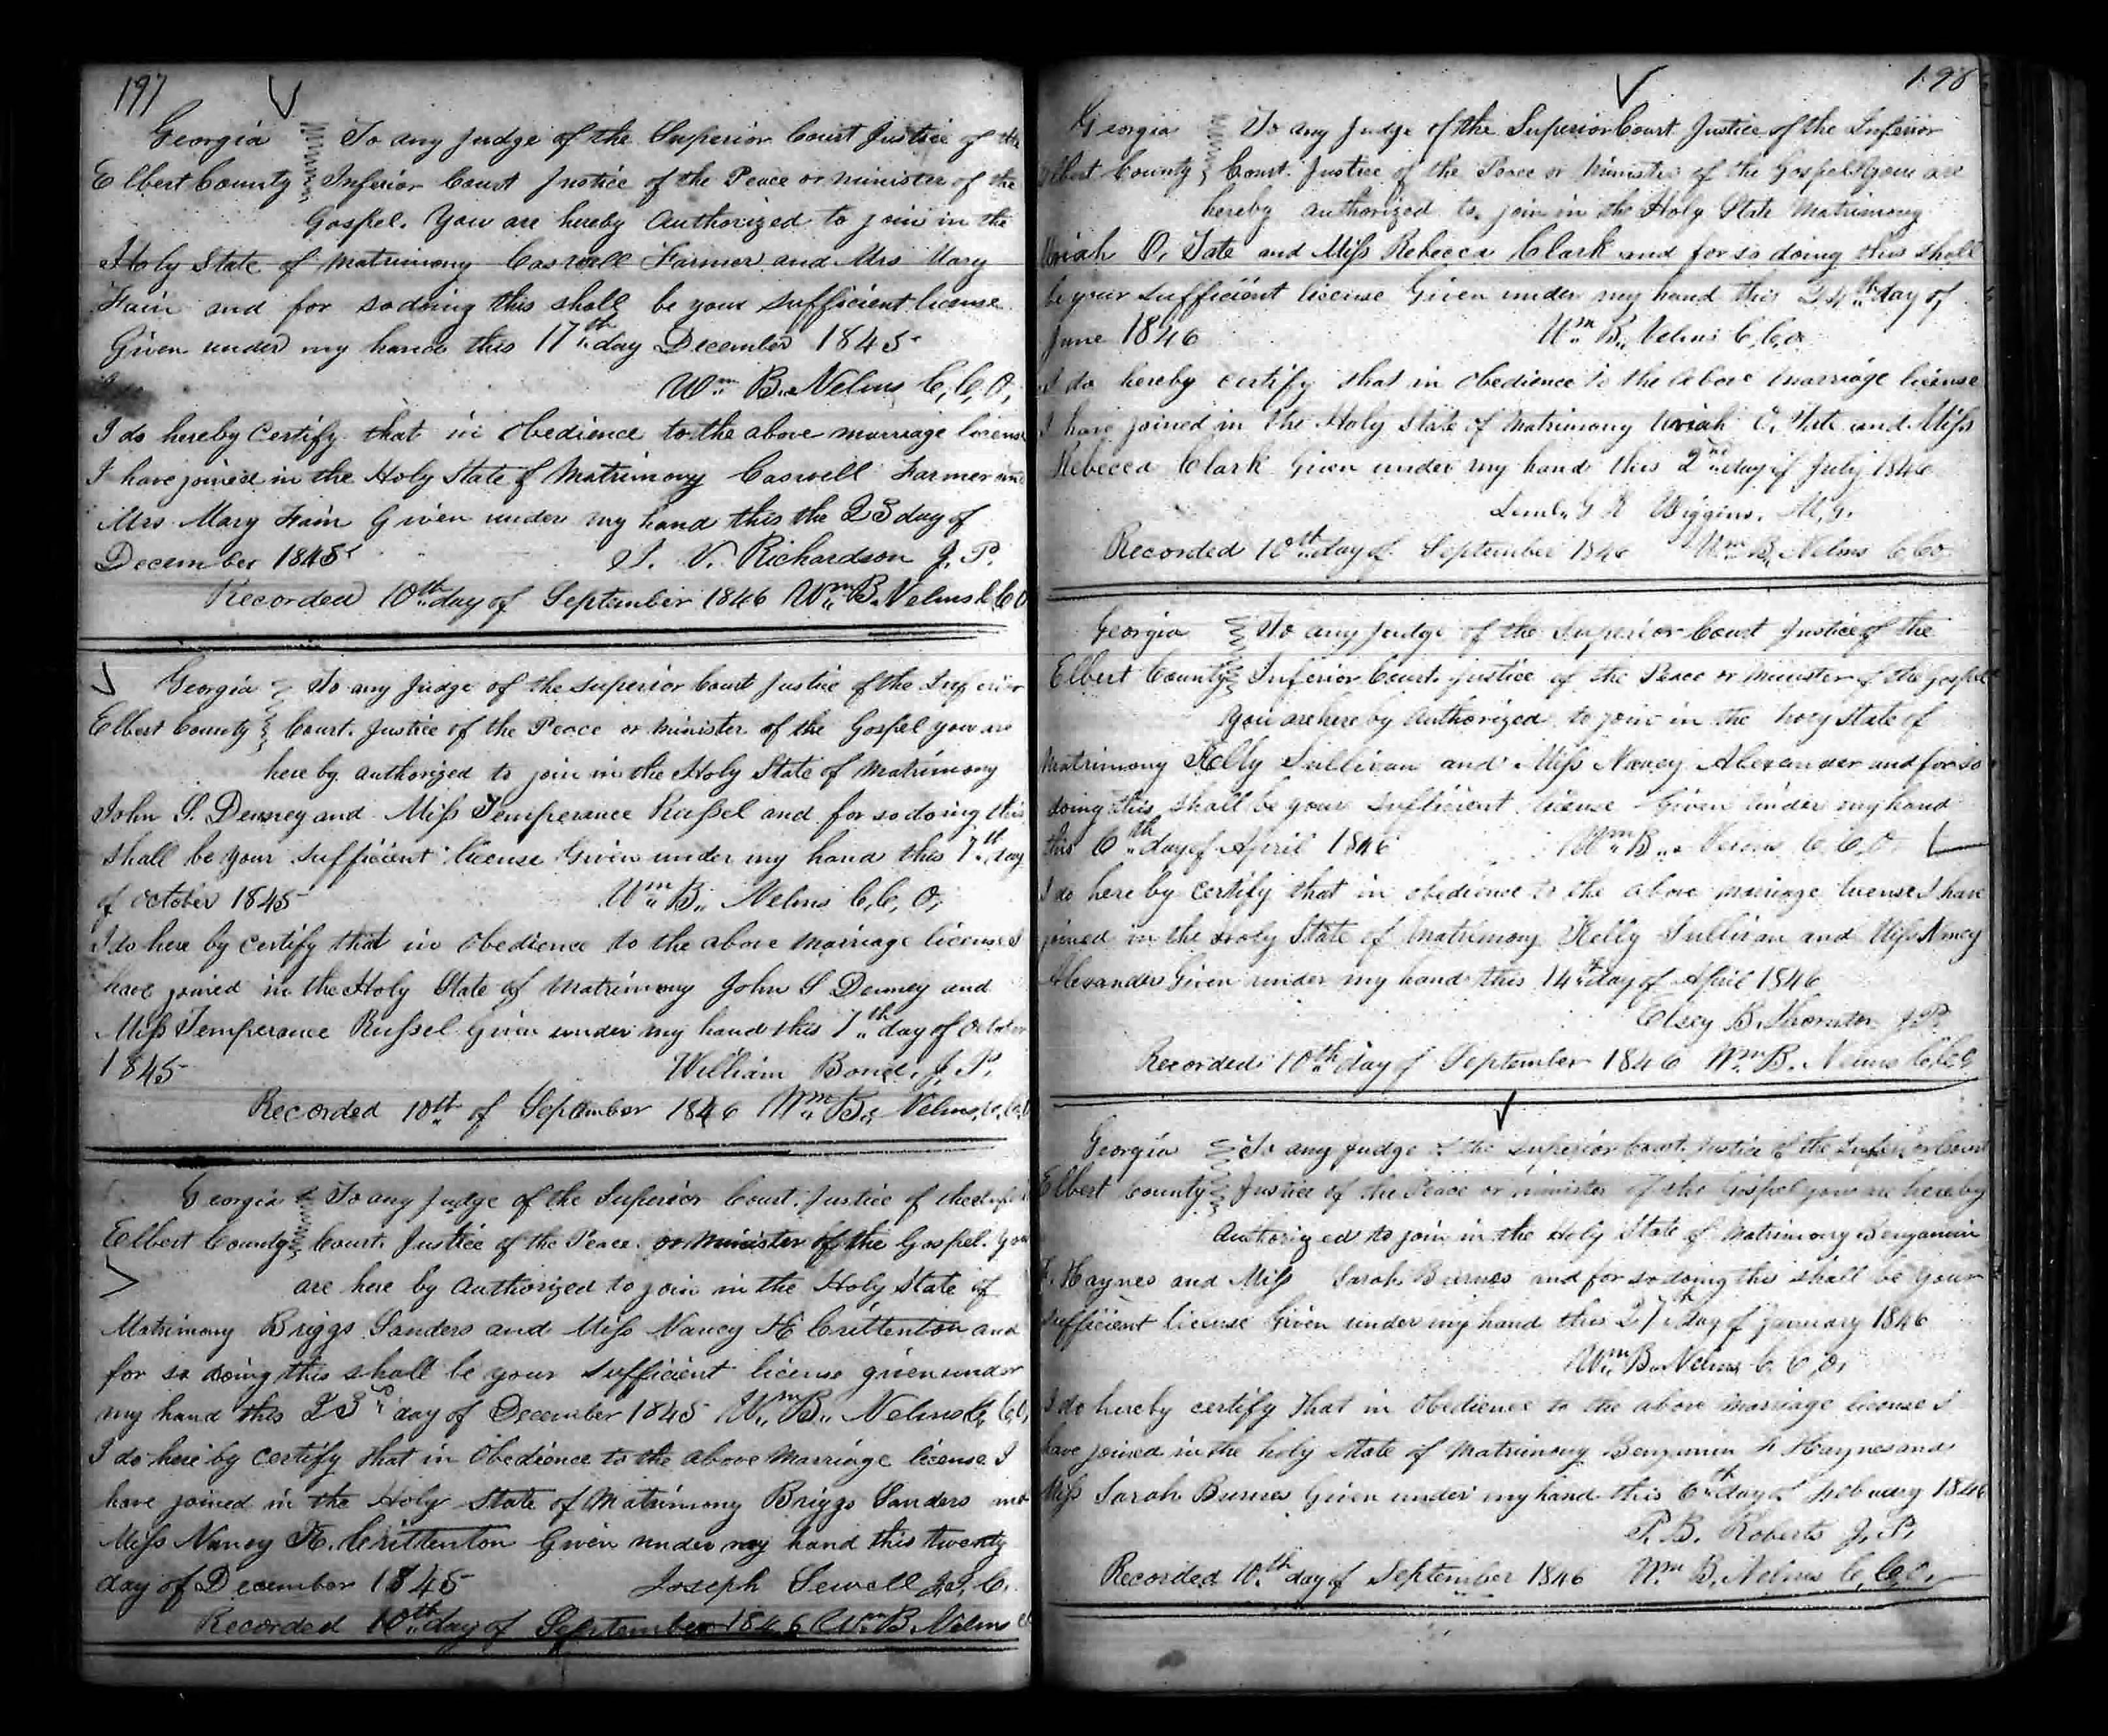 197
Georgia To any Judge of the Superior Court Justice of the
Elbert County Inferior Court Justice of the Peace or minister of the
Gospel. You are hereby Authorized to join in the
Holy State of Matrimony Caswell Farmer and Mrs Mary
Fain and for so doing this shall be your sufficient license
Given under my hand this 17th day December 1845
Wm B. Nelms C, C, O,
I do hereby Certify that in Obedience to the above marriage license
I have joined in the Holy State of Matrimony Caswell Farmer and
Mrs Mary Fain Given under my hand this the 23 day of
December 1845 V. Richardson J. P.
Recorded 10th day of September 1846 Wm B. Nelms C C O
Georgia To any Judge of the Superior Court Justice of the Inferior
Elbert County Court. Justice of the Peace or Minister of the Gospel you are
here by authorized to join in the Holy State of Matrimony
John S. Denney and Miss Temperance Russel and for so doing this
shall be your sufficient license Given under my hand this 7th day
of October 1845 Wm B. Nelms C, C, O,
I do here by certify that in Obedience to the above Marriage license I
have joined in the Holy State of Matrimony John S Denney and
Miss Temperance Russel Given under my hand this 7th day of October
1845 William Bond. J, P.
Recorded 10th of September 1846 Wm B. Nelms, C, C, O
Georgia To any Judge of the Superior Court. Justice of the
Elbert County Court. Justice of the Peace. or Minister of the Gospel. You
are here by Authorized to join in the Holy State of
Matrimony Briggs Sanders and Miss Nancy H Crittenton and
for so doing this shall be your sufficient license given under
my hand this 23d day of December 1845 Wm B. Nelms C, C, O,
I do here by certify that in Obedience to the above Marriage license I
have joined in the Holy State of Matrimony Briggs Sanders and
Miss Nancy H. Crittenton Given under my hand this twenty
day of December 1845 Joseph Sewell J. I, C.
Recorded 10th day of September 1846 Wm B. Nelms
198
Georgia To any Judge of the Superior Court Justice of the Inferior
Elbert County Court. Justice of the Peace or Minister of the Gospel you are
hereby authorized to join in the Holy State Matrimony
Uriah O. Tate and Miss Rebecca Clark and for so doing this shall
be your sufficient license Given under my hand this 24th day of
June 1846 Wm B. Nelms C, C, O
I do hereby certify that in Obedience to the above marriage license
I have joined in the Holy State of Matrimony Uriah O. Tate and Miss
Rebecca Clark Given under my hand this 2nd day of July 1846
Wiggins. M, G.
Recorded 10th day of September 1846 Wm B. Nelms C C O
Georgia To any Judge of the Superior Court Justice of the
Elbert County Inferior Court. justice of the Peace or Minister of the Gospel
You are here by authorized to join in the holy State of
Matrimony Kelly Sullivan and Miss Nancy Alexander and for so
doing this shall be your sufficient license Given under my hand
this 6th day of April 1846 Wm B. Nelms C, C, O
I do here by certify that in obedience to the above marriage license I have
joined in the Holy State of Matrimony Kelly Sullivan and Miss Nancy
Alexander Given under my hand this 14th day of April 1846
B. Thornton J P.
Recorded 10th day of September 1846 Wm B. Nelms C, C, O
Georgia To any Judge of the Superior Court. Justice of the Inferior Court
Elbert County Justice of the Peace or minister of the Gospel you are hereby
Authorized to join in the Holy State of Matrimony Benjamin
F. Haynes and Miss Sarah Burnes and for so doing this shall be your
sufficient license Given under my hand this 27th day of January 1846
Wm B. Nelms C. C, O,
I do hereby certify that in Obedience to the above marriage license I
have joined in the holy state of Matrimony Benjamin Haynes and
Miss Sarah Burnes Given under my hand this 6th day of February 1846
P. B. Roberts J, P,
Recorded 10th day of September 1846 Wm B. Nelms C, C, O,